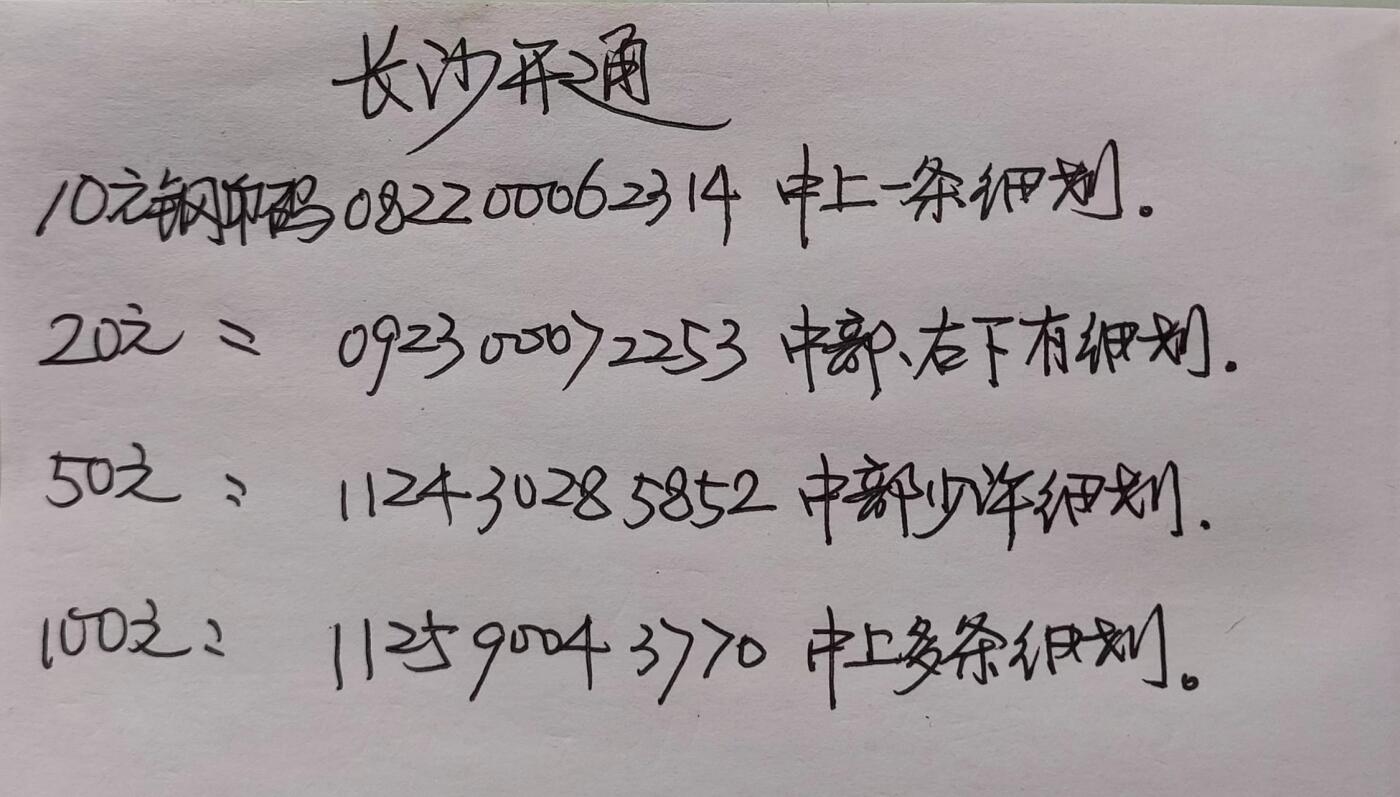 长沙开通
10元钢印码082200062314 中上一条细划。
20元〃 092300072253 中部、右下有细划.
50元〃 112430285852 中部少许细划.
100元〃 112590043770 中上多条细划。